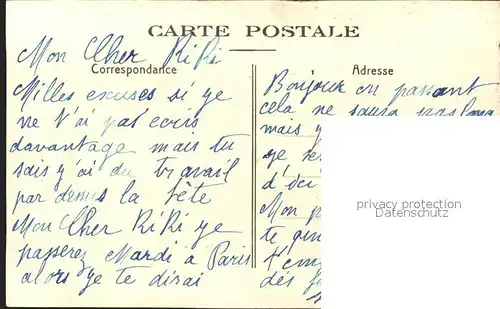 CARTE POSTALE
Mon Cher RiRi
Correspondance
Milles excuses si ye
ne t'ai pas ecris
davantage mais tu
sais y'ai du travail
par dessus la tête
Mon Cher RiRi ye
passerez Mardi à Paris
alors ye te dirai
Adresse
Bonjour en passant
cela ne sera pas long
mais y
ye te
d'ici
Mon
te
t'em
dés
privacy protection
Datenschutz